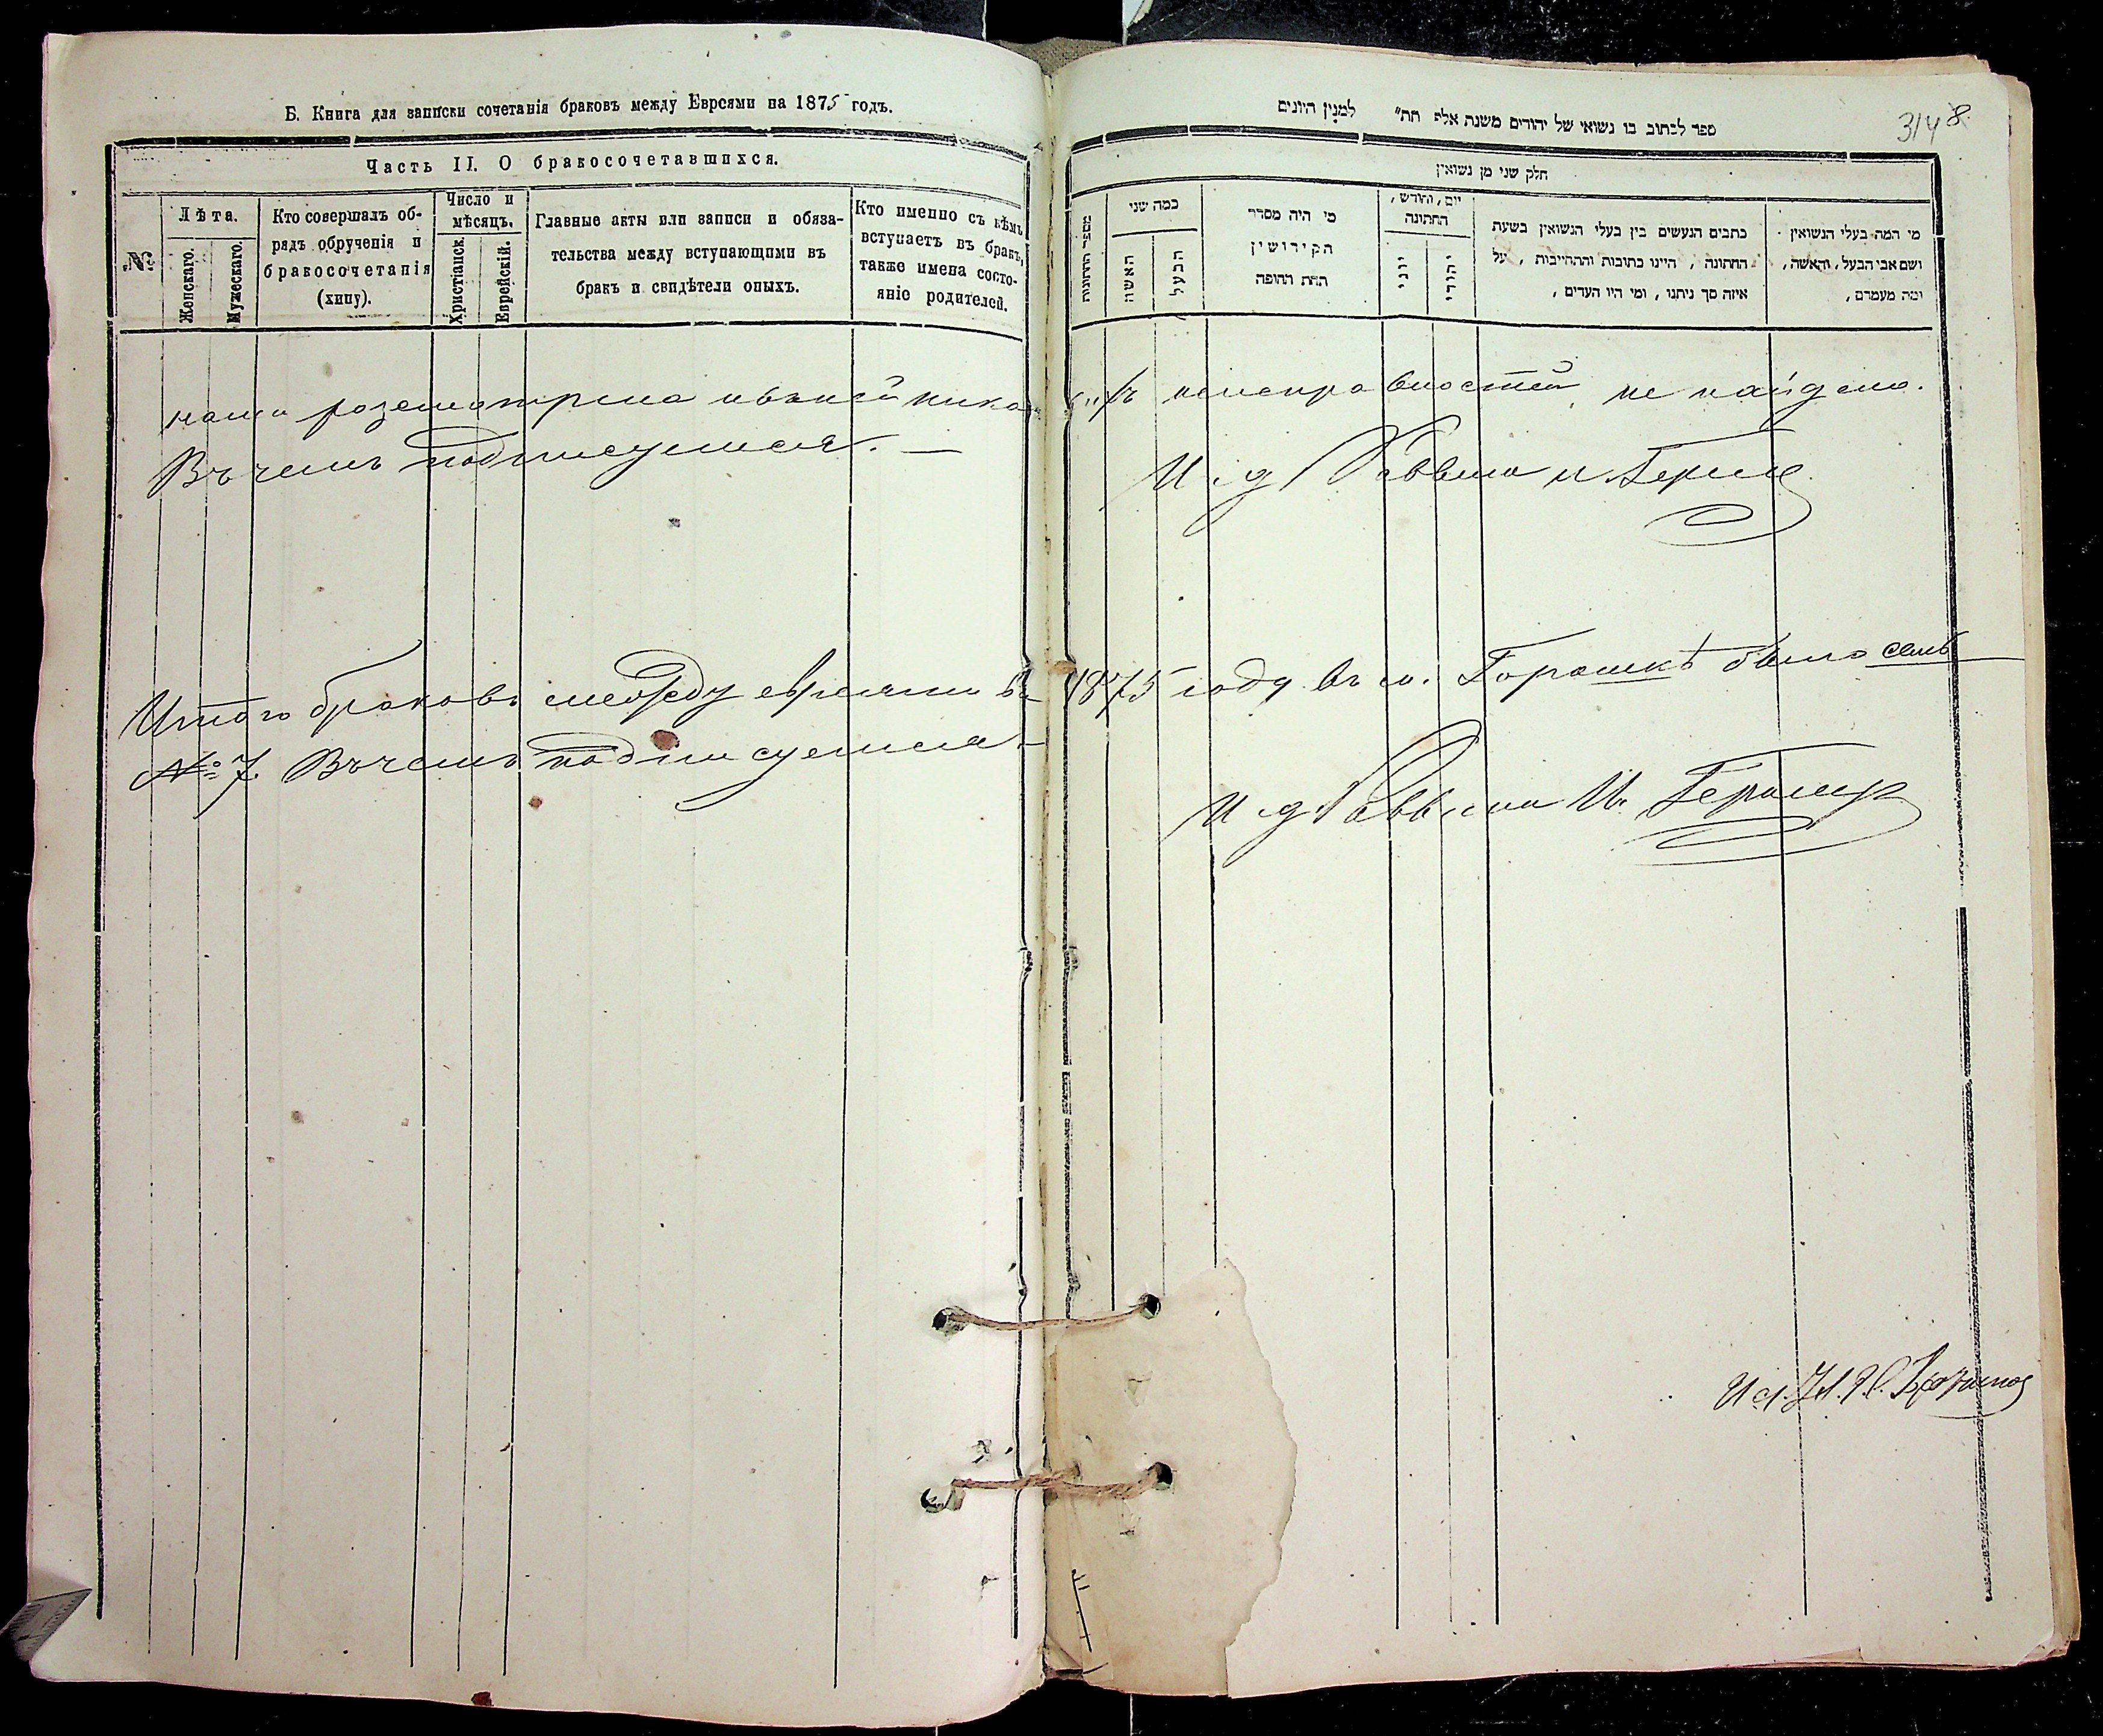 Б. Книга для записки сочетанія браковъ между Евреями на 1875 годъ.
Часть II. О бракосочетавшихся.
№
Лѣта.
Женскаго.
Мужескаго.
Кто совершалъ об-
рядъ обрученія и
бракосочетанія
(хипу).
Число и
мѣсяцъ.
Христіанск.
Еврейскій.
Главные акты или записи и обяза-
тельства между вступающими въ
бракъ и свидѣтели оныхъ.
Кто именно съ кѣмъ
вступаетъ въ бракъ,
также имена состо-
яніе родителей.
ספר לכתוב בו נשואי של יהודים משנת אלף תת״ למנין היונים
314 8.
חלק שני מן נשואין
מספר החתונות
כמה שני
האשה
הבעל
מי היה מסדר
הקידושין
תחת החופה
יום, וחודש,
החתונה
יוני
יהודי
כתבים הנעשים בין בעלי הנשואין בשעת
החתונה, היינו כתובות וההחייבות, על
איזה סך ניתנו, ומי היו העדים,
מי המה בעלי הנשואין
ושם אבי הבעל, והאשה,
ומה מעמדם,
нами розсмотрена и въ ней ника неисправностей не найдено.
Въ чемъ подписуемся. —
И. д. Раввина И. Герш
Итого браковъ между евреями въ 1875 году въ м. Горошкѣ было семь
№ 7. Въ чемъ подписуемся —
И. д. Раввина И.